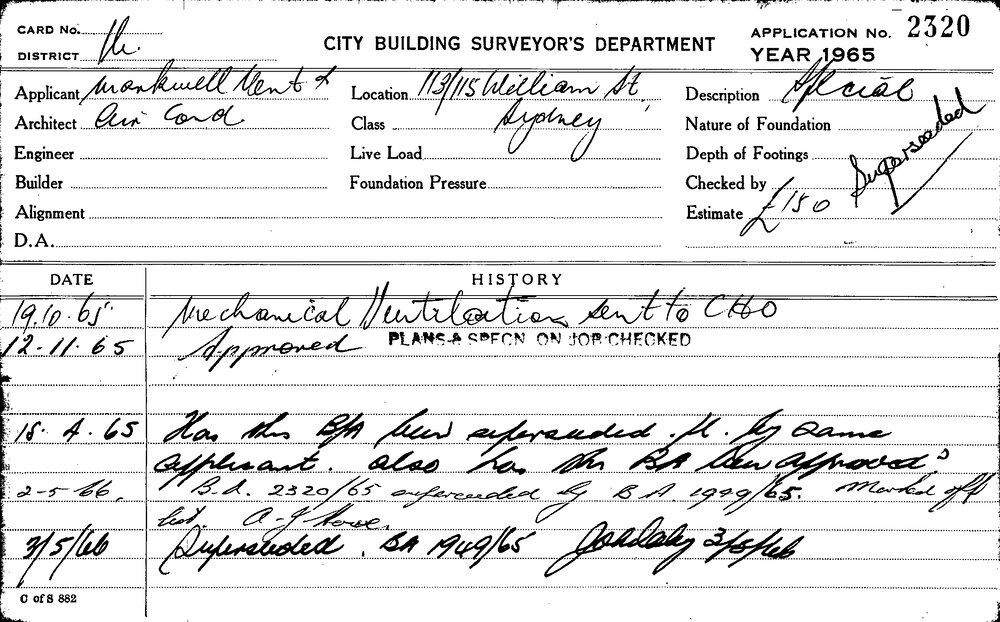 CARD No.
DISTRICT
CITY BUILDING SURVEYOR'S DEPARTMENT
APPLICATION No. 2320
YEAR 1965
Applicant Markwell Vent &
Location 113/115 William St,
Description Special
Architect Air Cond
Class Sydney
Nature of Foundation
Superseeded
Engineer
Live Load
Depth of Footings
Builder
Foundation Pressure
Checked by
Alignment
Estimate £150
D.A.
DATE HISTORY
19.10.65 Mechanical Ventilation sent to CHO
12-11-65 Approved PLANS & SPECN ON JOB CHECKED
15.4.65 Has this B/A been superseeded by same
applicant. also has this BA been approved?
2-5-66. B.A. 2320/65 superseeded by B.A. /65. Marked off
list.
3/5/66 Superseeded. BA 1949/65 3/5/66
C of S 882